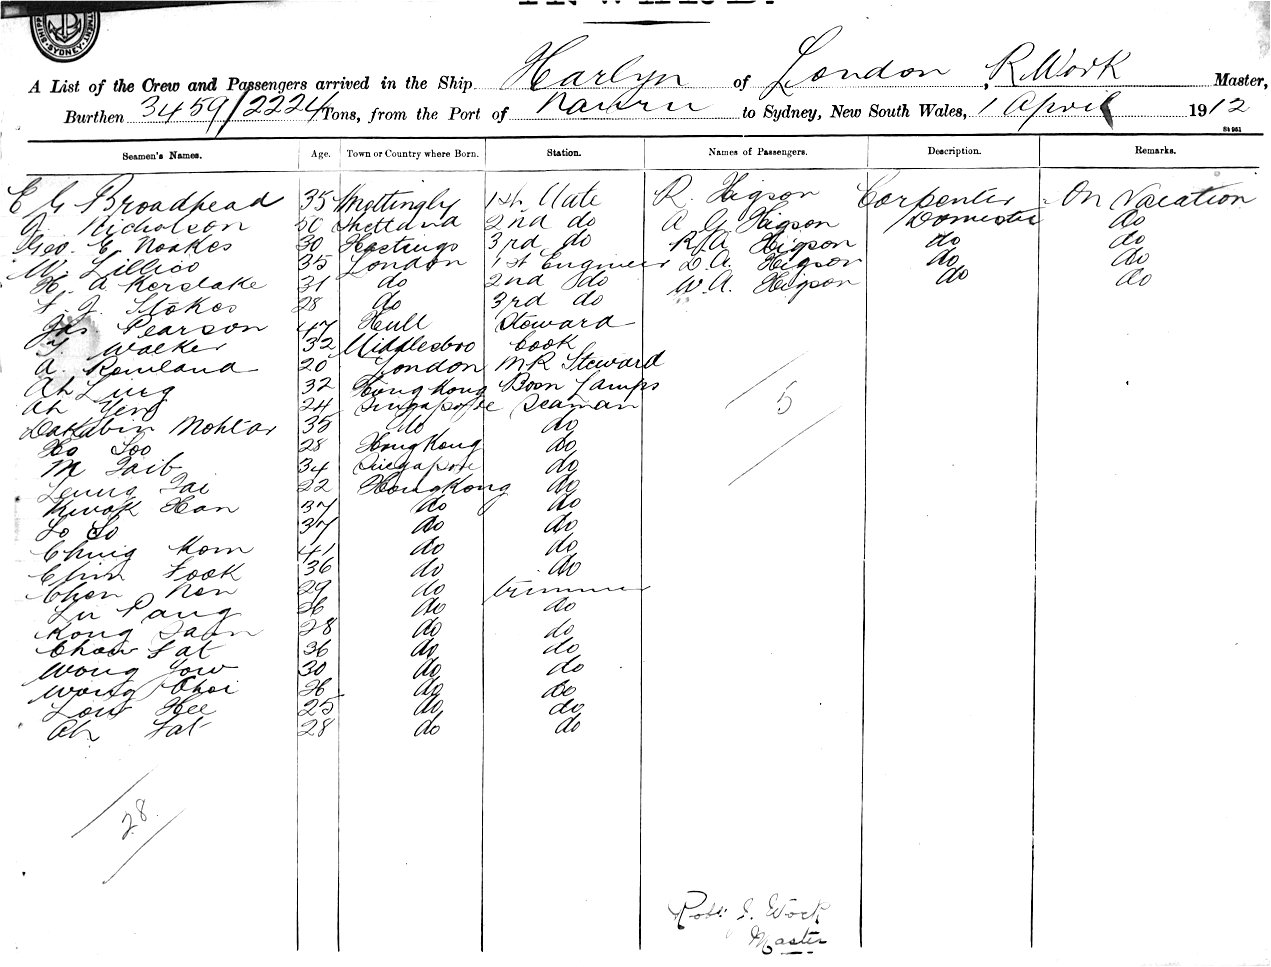 INWARD.
SYDNEY
A List of the Crew and Passengers arrived in the Ship Harlyn of London, R Work Master,
Burthen 3459/2224 Tons, from the Port of Nauru to Sydney, New South Wales, 1 April 1912
Seamen's Names. Age. Town or Country where Born. Station. Names of Passengers. Description. Remarks.
E G Broadhead 35 Mettingly 1st Mate R. Higson Carpenter On Vacation
Nicholson 50 Shetland 2nd do A G Higson Domestic do
Geo. E. Noakes 30 Hastings 3rd do R. A. Higson do do
W. Lillico 35 London 1st Engineer D. A. Higson do do
H. A Kerslake 31 do 2nd do W. A. Higson do do
F. J. Stokes 28 do 3rd do
Jas. Pearson 47 Hull Steward
T. Walker 32 Middlesbro Cook
A. Rowland 20 London MR Steward
Ah Ling 32 Hong Kong Bosn Lamps
Ah Yeng 24 Singapore Seaman
Mohtar 35 do do
Ho Soo 28 HongKong do
M Taib 34 Singapore do
Leung Tai 22 HongKong do
Kwok Han 37 do do
So So 37 do do
Ching Kom 41 do do
Chin Fook 36 do do
Chen Non 29 do trimmer
Lu Pang 26 do do
Kong Saan 28 do do
Chow Fat 36 do do
Wong Yow 30 do do
Wong Choi do do
Low Hee 25 do do
Ah Fat 28 do do
5
28
Robt J. Work
Master